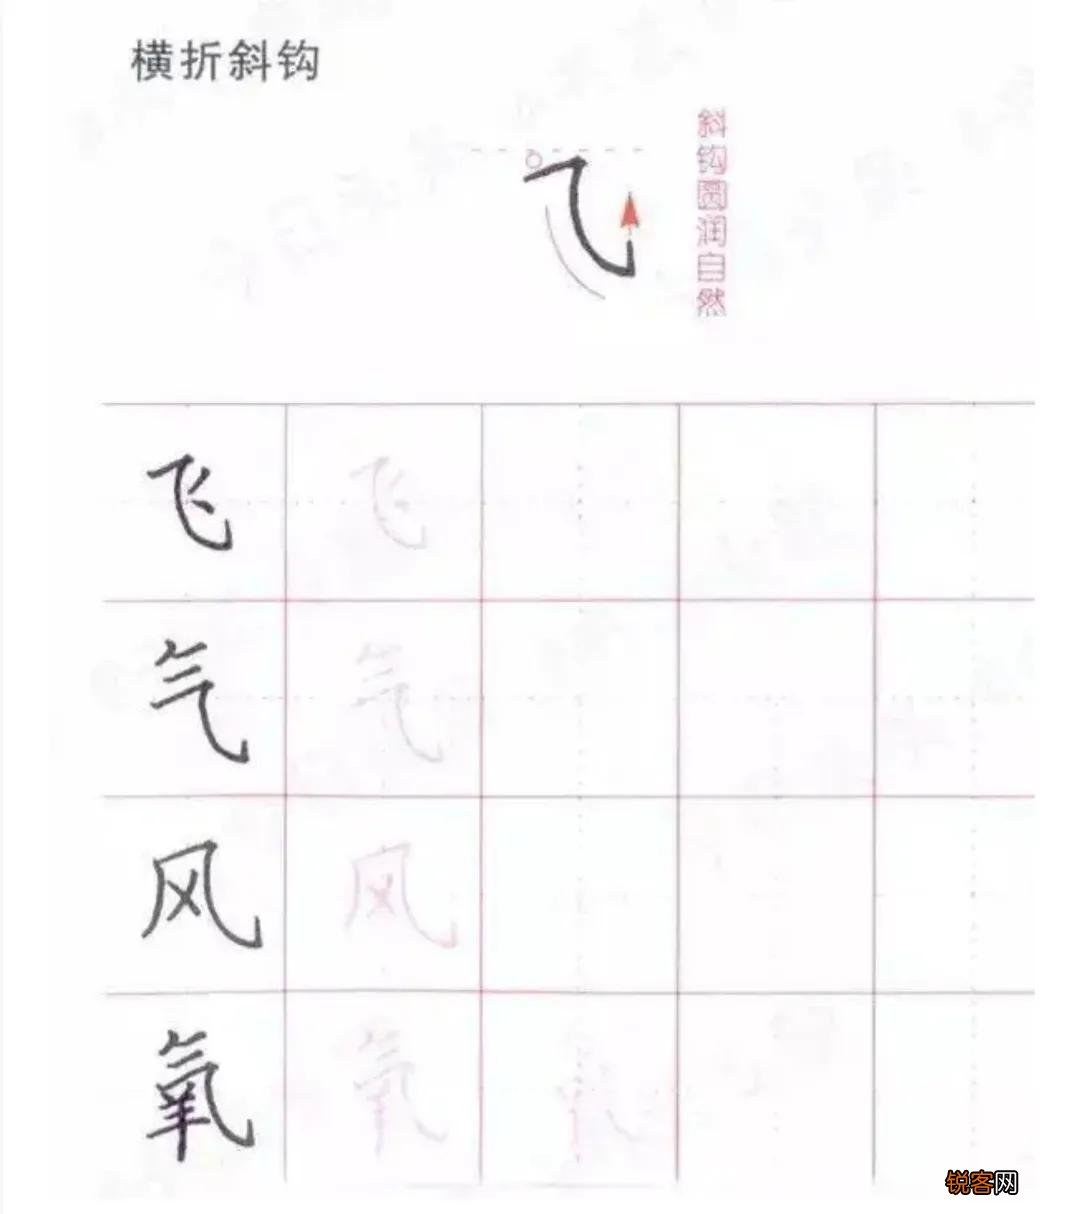 横折斜钩
斜钩圆润自然
飞 飞
气 气
风 风
氧 氧
锐客网